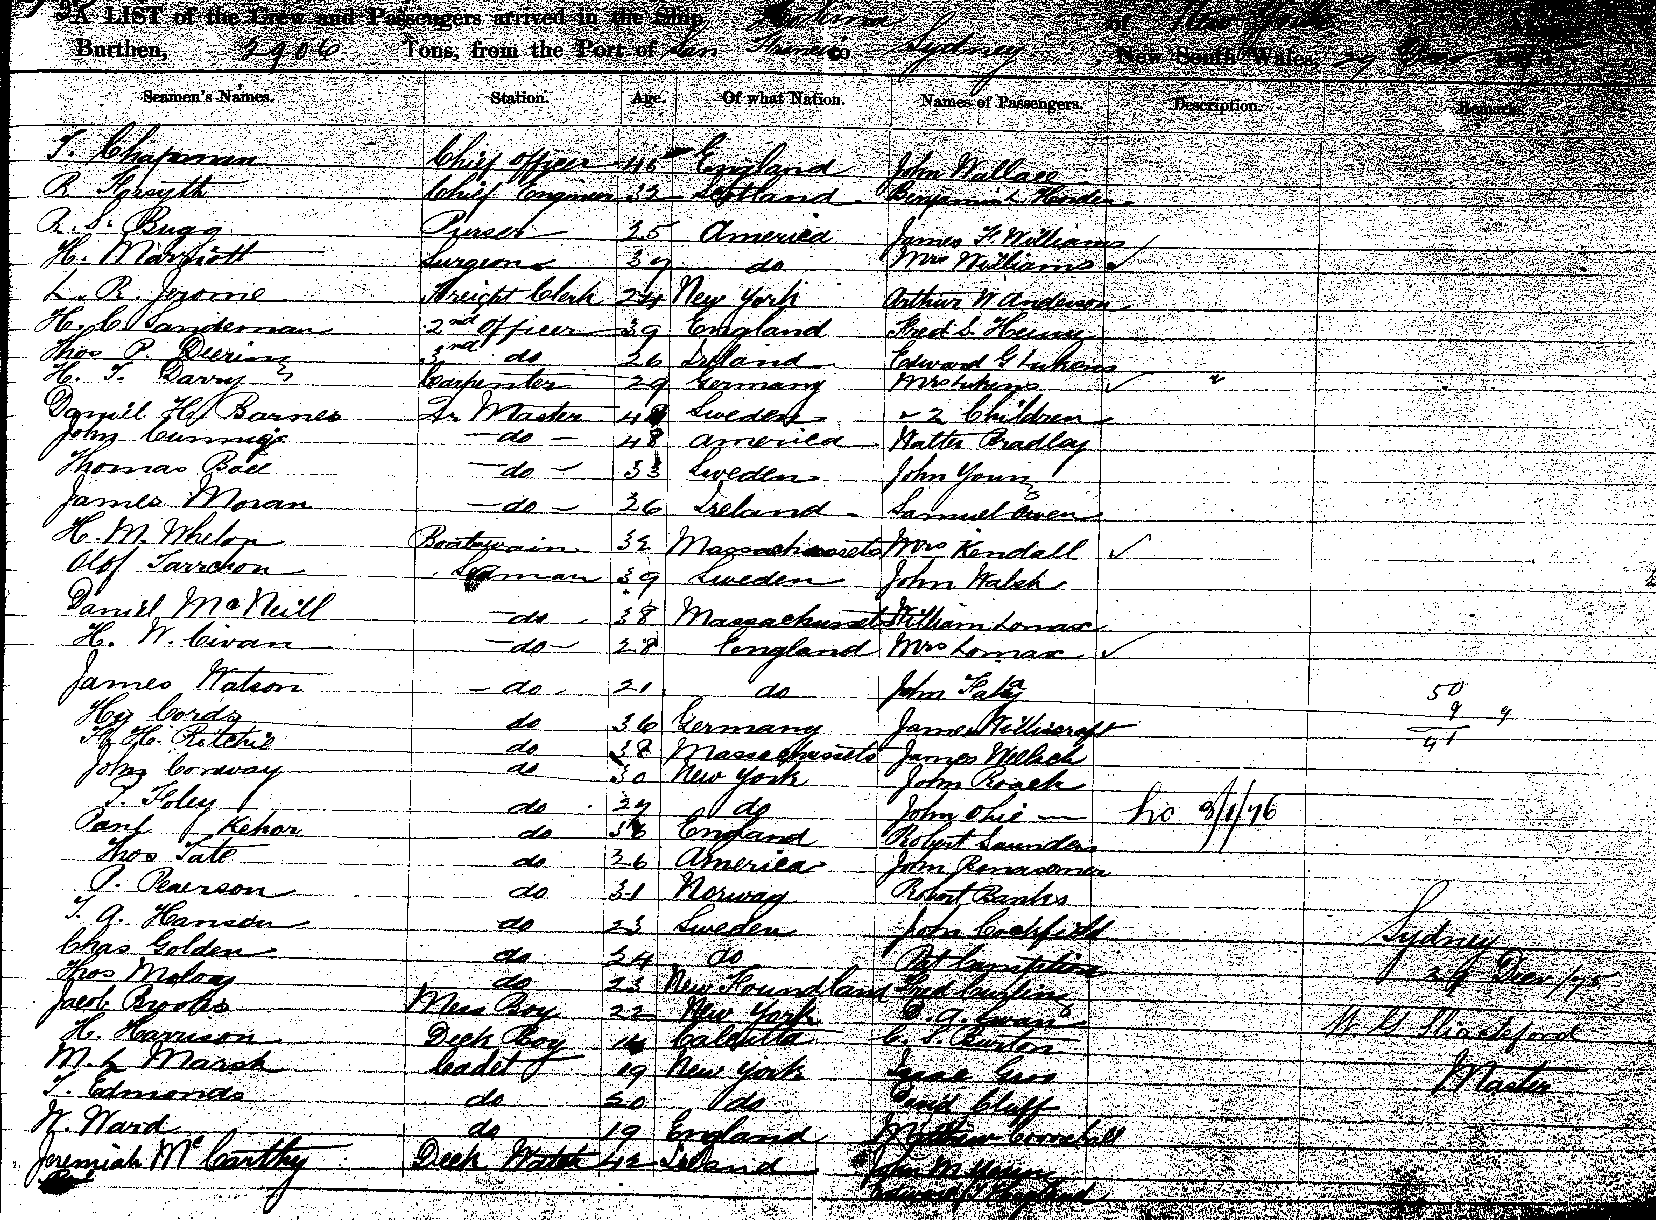 A LIST of the Crew and Passengers arrived in the Ship of New York
Burthen, 2906 Tons, from the Port of San Francisco Sydney New South Wales, 29 Decr
Seamen's Names. Station. Age. Of what Nation. Names of Passengers. Description. Remarks.
T. Chapman Chief Officer 45 England John Wallace
R Forsyth Chief Engineer 32 Scotland Benjamin
R. S. Bugg Purser 25 America James F. Williams
H. Marriott Surgeon 37 do Mrs Williams
L. R. Jerome Freight Clerk 24 New York Arthur W Anderson
H. C. Sandeman 2nd Officer 39 England Fred S.
Thos P. Deering 3rd do 26 Ireland Edward G Lukens
H. T. Darry Carpenter 29 Germany Mrs Lukens "
Daniel H. Barnes Qr Master Sweden " 2 Children
John - do - 48 America Walter Bradley
Thomas - do - 33 Sweden John Young
James Moran - do - 26 Ireland Samuel Owen
H. M. Whelon Boatswain 32 Massachussets Mrs Kendall
Olof Seaman 39 Sweden John Walsh
Daniel McNeill - do 38 Massachussets William Lomax
H. W. - do - 28 England Mrs Lomax
James Watson - do - 21 do John 50
Hy Cords do 36 Germany James 9 9
H. Ritchie do 38 Massachussets James 41
John Conway do 30 New York John Roach
P. Foley do 27 do John Ohie hc 3/1/76
do England Robert Saunders
Thos Tate do 26 America John
P. Pearson do 31 Norway Robert Banks
T. A. Hanson do 23 Sweden John Sydney
Chas Golden do 24 do 29 Decr/75
Thos Molony do 23 New Foundland Fred
Jacob Brooks Mess Boy 22 New York
H. Harrison Deck Boy 14 Calcutta C. S. Burton
M. L. Marsh Cadet 19 New York Isaac Master
T. Edmonds do 20 do David Cluff
W. Ward do 19 England
Jeremiah McCarthy Deck Watch 42 Ireland John